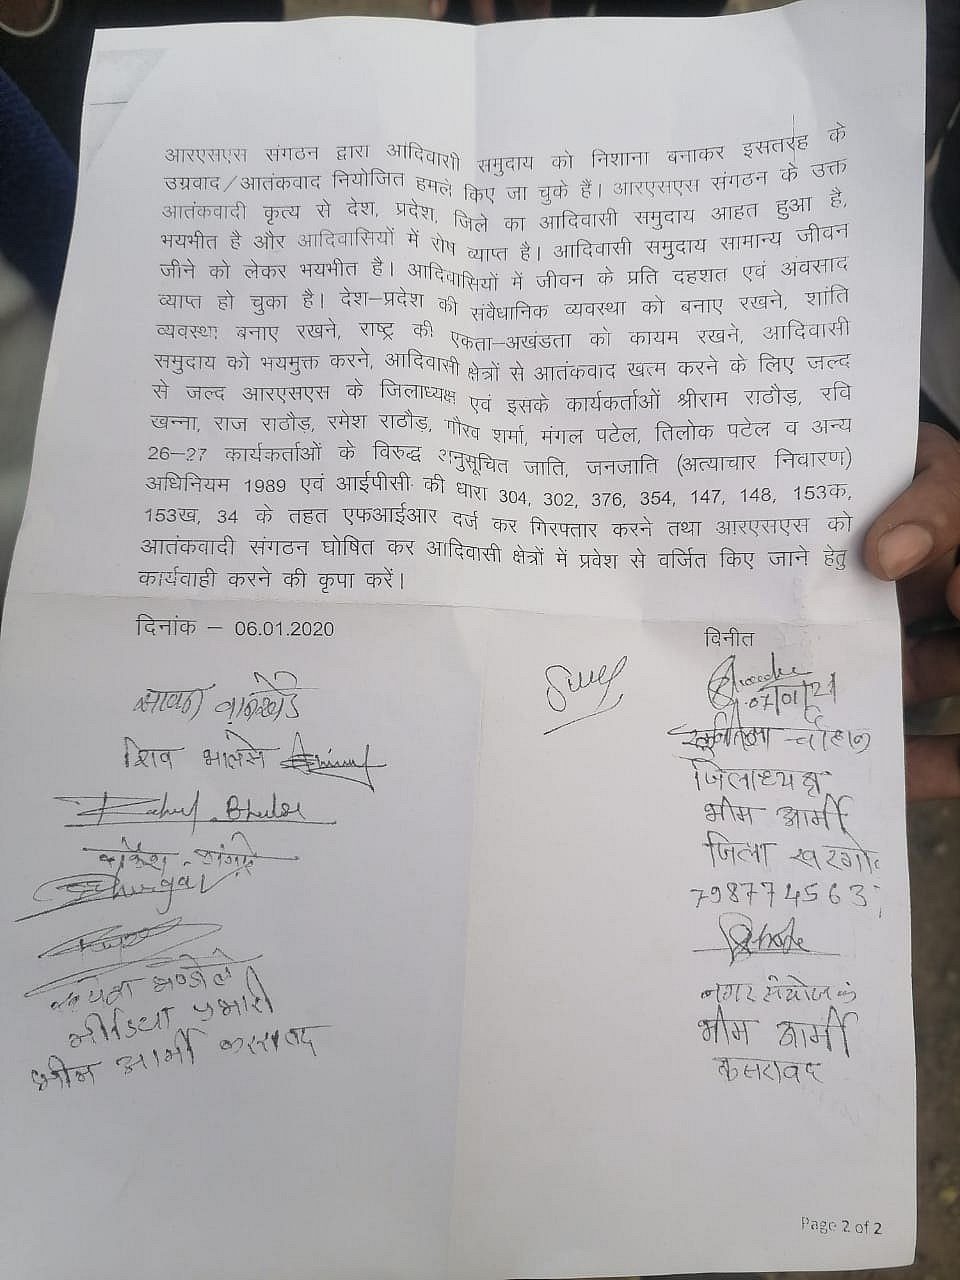 आरएसएस संगठन द्वारा आदिवासी समुदाय को निशाना बनाकर इसतरह के
उग्रवाद/आतंकवाद नियोजित हमले किए जा चुके हैं। आरएसएस संगठन के उक्त
आतंकवादी कृत्य से देश, प्रदेश, जिले का आदिवासी समुदाय आहत हुआ है,
भयभीत है और आदिवासियों में रोष व्याप्त है। आदिवासी समुदाय सामान्य जीवन
जीने को लेकर भयभीत है। आदिवासियों में जीवन के प्रति दहशत एवं अवसाद
व्याप्त हो चुका है। देश–प्रदेश की संवैधानिक व्यवस्था को बनाए रखने, शांति
व्यवस्था बनाए रखने, राष्ट्र की एकता–अखंडता को कायम रखने, आदिवासी
समुदाय को भयमुक्त करने, आदिवासी क्षेत्रों से आतंकवाद खत्म करने के लिए जल्द
से जल्द आरएसएस के जिलाध्यक्ष एवं इसके कार्यकर्ताओं श्रीराम राठौड़, रवि
खन्ना, राज राठौड़, रमेश राठौड़, गौरव शर्मा, मंगल पटेल, तिलोक पटेल व अन्य
26–27 कार्यकर्ताओं के विरुद्ध अनुसूचित जाति, जनजाति (अत्याचार निवारण)
अधिनियम 1989 एवं आईपीसी की धारा 304, 302, 376, 354, 147, 148, 153क,
153ख, 34 के तहत एफआईआर दर्ज कर गिरफ्तार करने तथा आरएसएस को
आतंकवादी संगठन घोषित कर आदिवासी क्षेत्रों में प्रवेश से वर्जित किए जाने हेतु
कार्यवाही करने की कृपा करें।
दिनांक – 06.01.2020
विनीत
सावन वानखेडे
शिव भालसे
चौहान
जिलाध्यक्ष
भीम आर्मी
जिला खरगो
798774563
नगर संयोजक
भीम आर्मी
कसरावद
मीडिया प्रभारी
भीम आर्मी कसरावद
Page 2 of 2